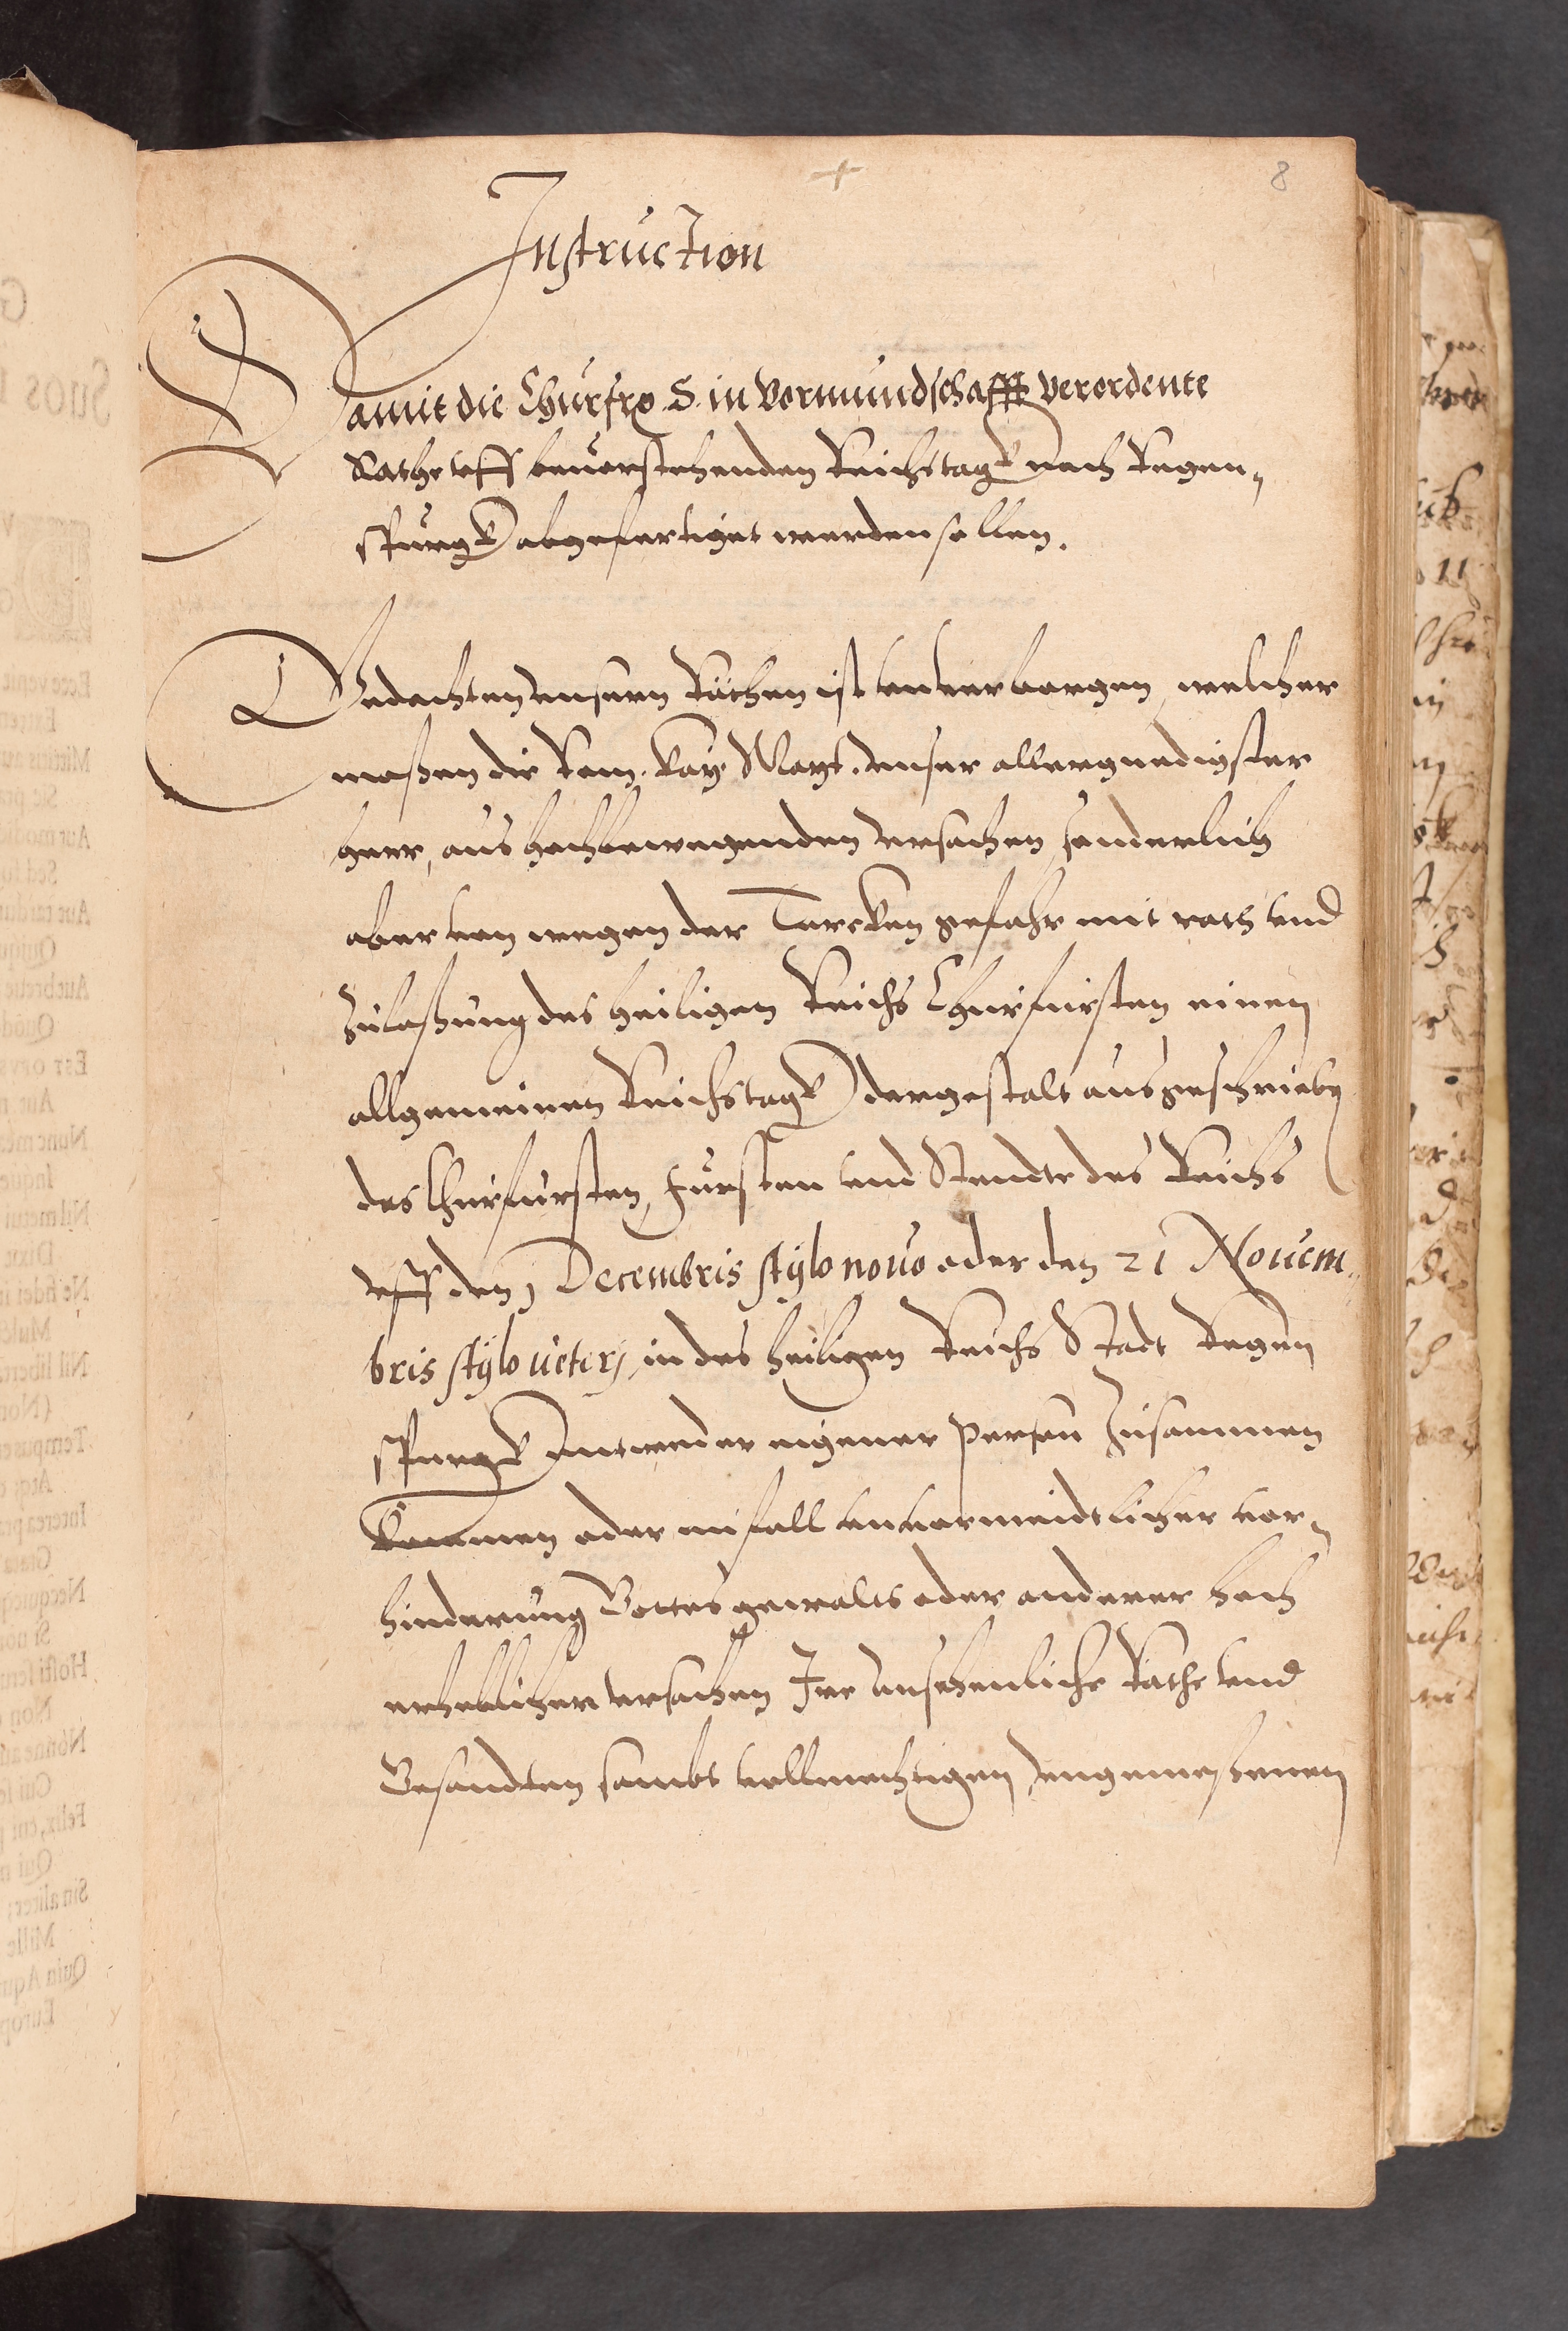 8
Instruction
Damit die Churfr. S. in Vormundschafft verordente
Räthe vff beuorstehenden Reichstagk nach Regen„
spurgk abgefertiget werden sollen.
Gedachten vnsern Räthen ist vnuerborgen, welcher
maßen die Rom. Kay. Mayt. vnser allergnedigster
herr, aus hochbewegenden vrsachen, sonderlich
aber von wegen der Turcken gefahr mit rath vnd
zulaßung des heiligen Reichs Churfursten einen
allgemeinen Reichstagk dergestalt ausgeschrieben
das Churfursten, Fursten vnd Stendte des Reichs
vff den 1 Decembris stylo nouo oder den 21 Nouem„
bris stylo veterj, in des heiligen Reichs Stadt Regen
spurgk entweder eigener Person zusammen
kommen oder im fall vnuormeidtlicher vor„
hinderung Gottes gewalts oder anderer hoch
erheblicher vrsachen Ire ansehenliche Räthe vnd
Gesandten sambt vollmechtigen, vngemeßenen